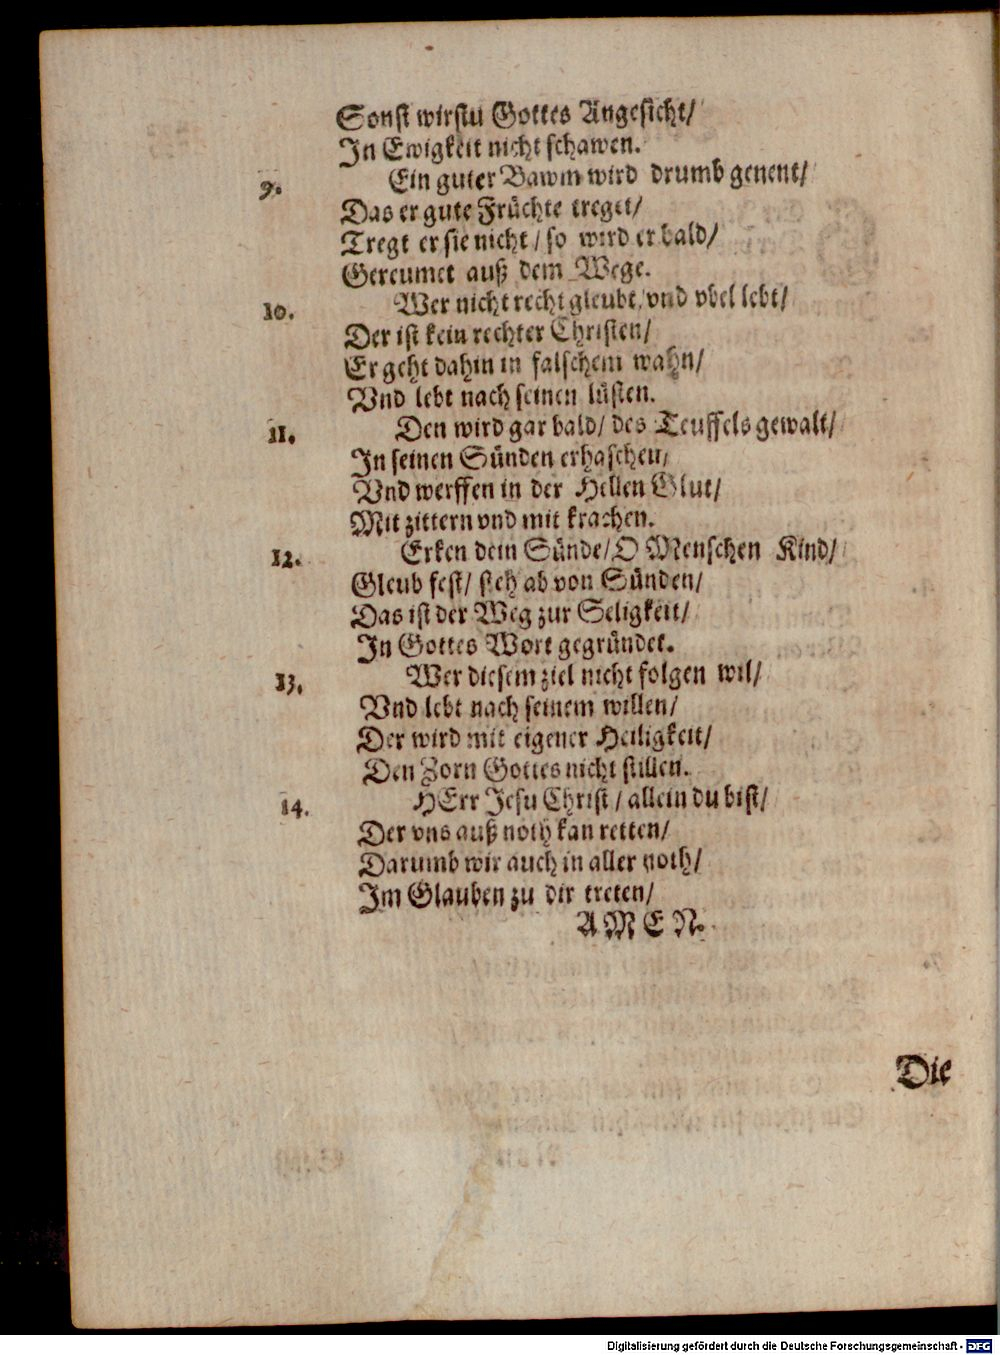 Sonst wirstu Gottes Angesicht/
In Ewigkeit nicht schawen.
9. Ein guter Bawm wird drumb genent/
Das er gute Früchte treget/
Tregt er sie nicht/ so wird er bald/
Gereumet auß dem Wege.
10. Wer nicht recht gleubt/ vnd vbel lebt/
Der ist kein rechter Christen/
Er geht dahin in falschem wahn/
Vnd lebt nach seinen lüsten.
11. Den wird gar bald/ des Teuffels gewalt/
In seinen Sünden erhaschen/
Vnd werffen in der Hellen Glut/
Mit zittern vnd mit krachen.
12. Erken dein Sünde/ O Menschen Kind/
Gleub fest/ steh ab von Sünden/
Das ist der Weg zur Seligkeit/
In Gottes Wort gegründet.
13. Wer diesem ziel nicht folgen wil/
Vnd lebt nach seinem willen/
Der wird mit eigener Heiligkeit/
Den Zorn Gottes nicht stillen.
14. HErr Jesu Christ/ allein du bist/
Der vns auß noth kan retten/
Darumb wir auch in aller noth/
Im Glauben zu dir treten/
AMEN.
Die
Digitalisierung gefördert durch die Deutsche Forschungsgemeinschaft - DFG